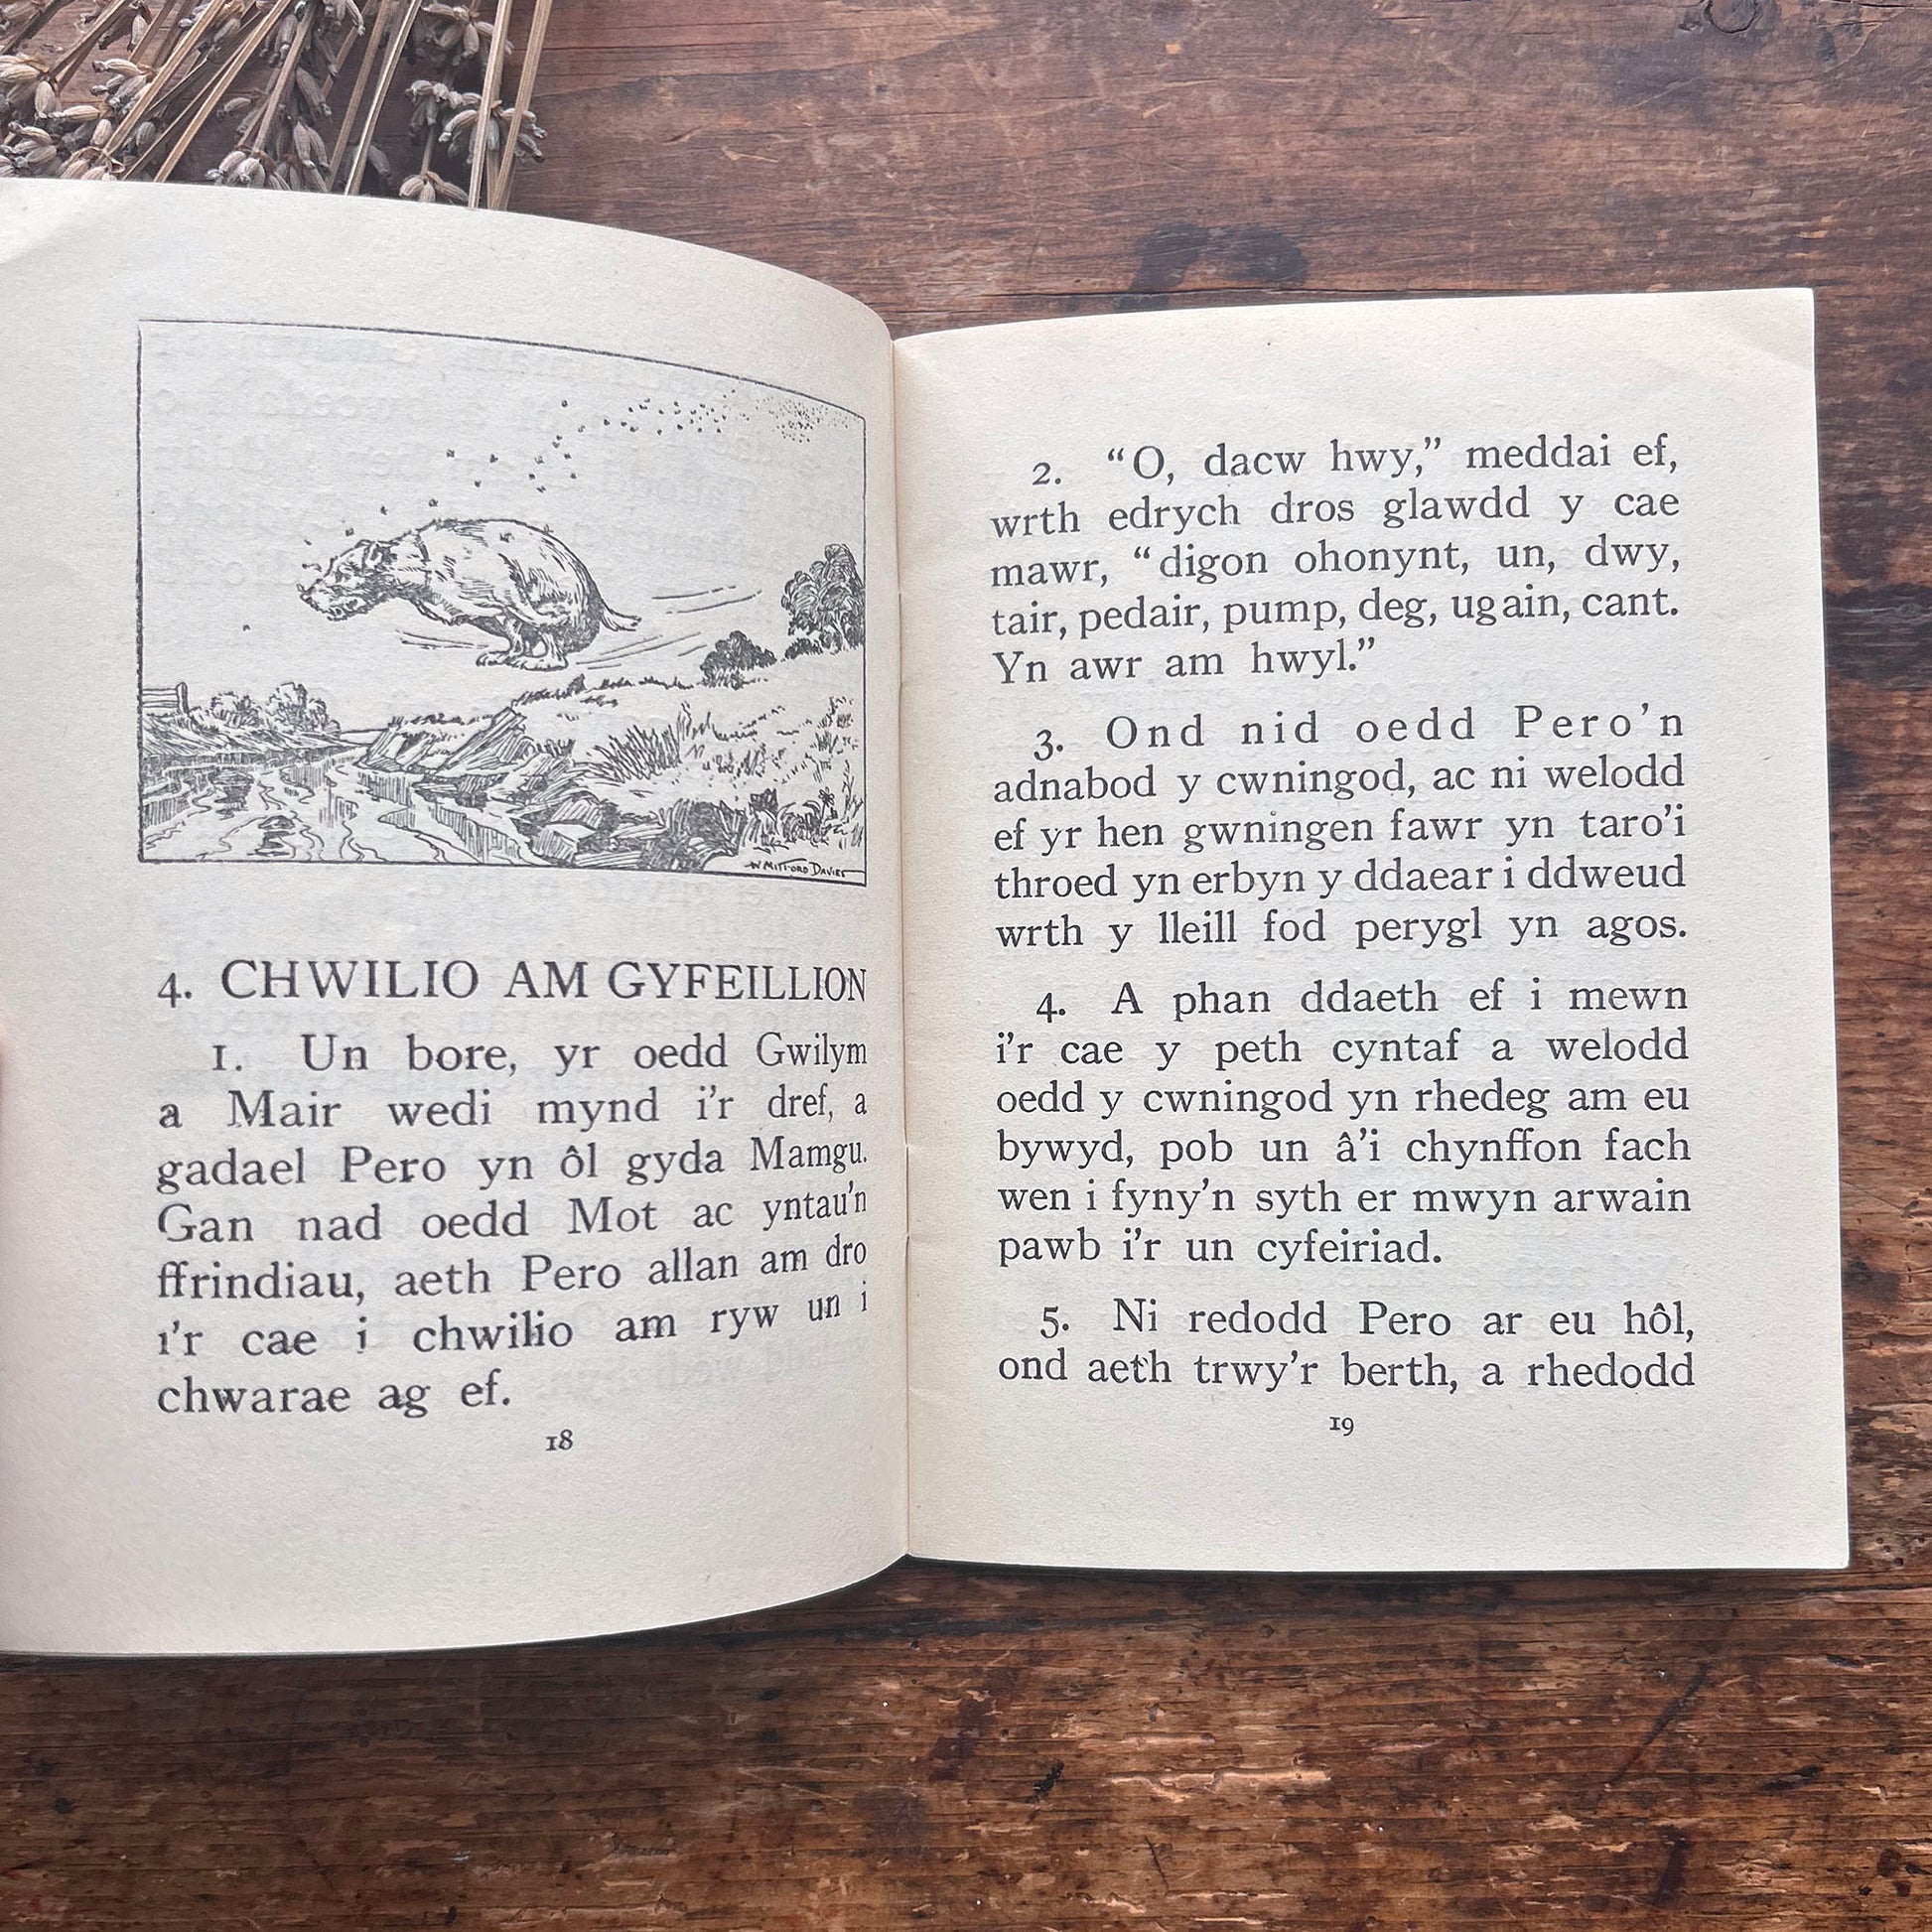 W MITFORD DAVIES
4. CHWILIO AM GYFEILLION
1. Un bore, yr oedd Gwilym
a Mair wedi mynd i'r dref, a
gadael Pero yn ôl gyda Mamgu.
Gan nad oedd Mot ac yntau'n
ffrindiau, aeth Pero allan am dro
i'r cae i chwilio am ryw un i
chwarae ag ef.
18
2. “O, dacw hwy,” meddai ef,
wrth edrych dros glawdd y cae
mawr, “digon ohonynt, un, dwy,
tair, pedair, pump, deg, ugain, cant.
Yn awr am hwyl.”
3. Ond nid oedd Pero’n
adnabod y cwningod, ac ni welodd
ef yr hen gwningen fawr yn taro’i
throed yn erbyn y ddaear i ddweud
wrth y lleill fod perygl yn agos.
4. A phan ddaeth ef i mewn
i’r cae y peth cyntaf a welodd
oedd y cwningod yn rhedeg am eu
bywyd, pob un â’i chynffon fach
wen i fyny’n syth er mwyn arwain
pawb i’r un cyfeiriad.
5. Ni redodd Pero ar eu hôl,
ond aeth trwy’r berth, a rhedodd
19